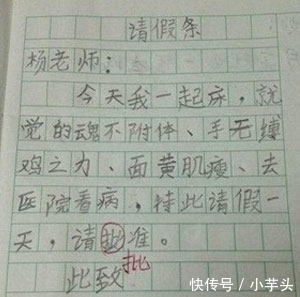 请假条
杨老师：
今天我一起床，就
觉的魂不附体、手无缚
鸡之力、面黄肌瘦、去
医院看病，特此请假一
天，请批准。
批
此致
快传号 / 小芋头